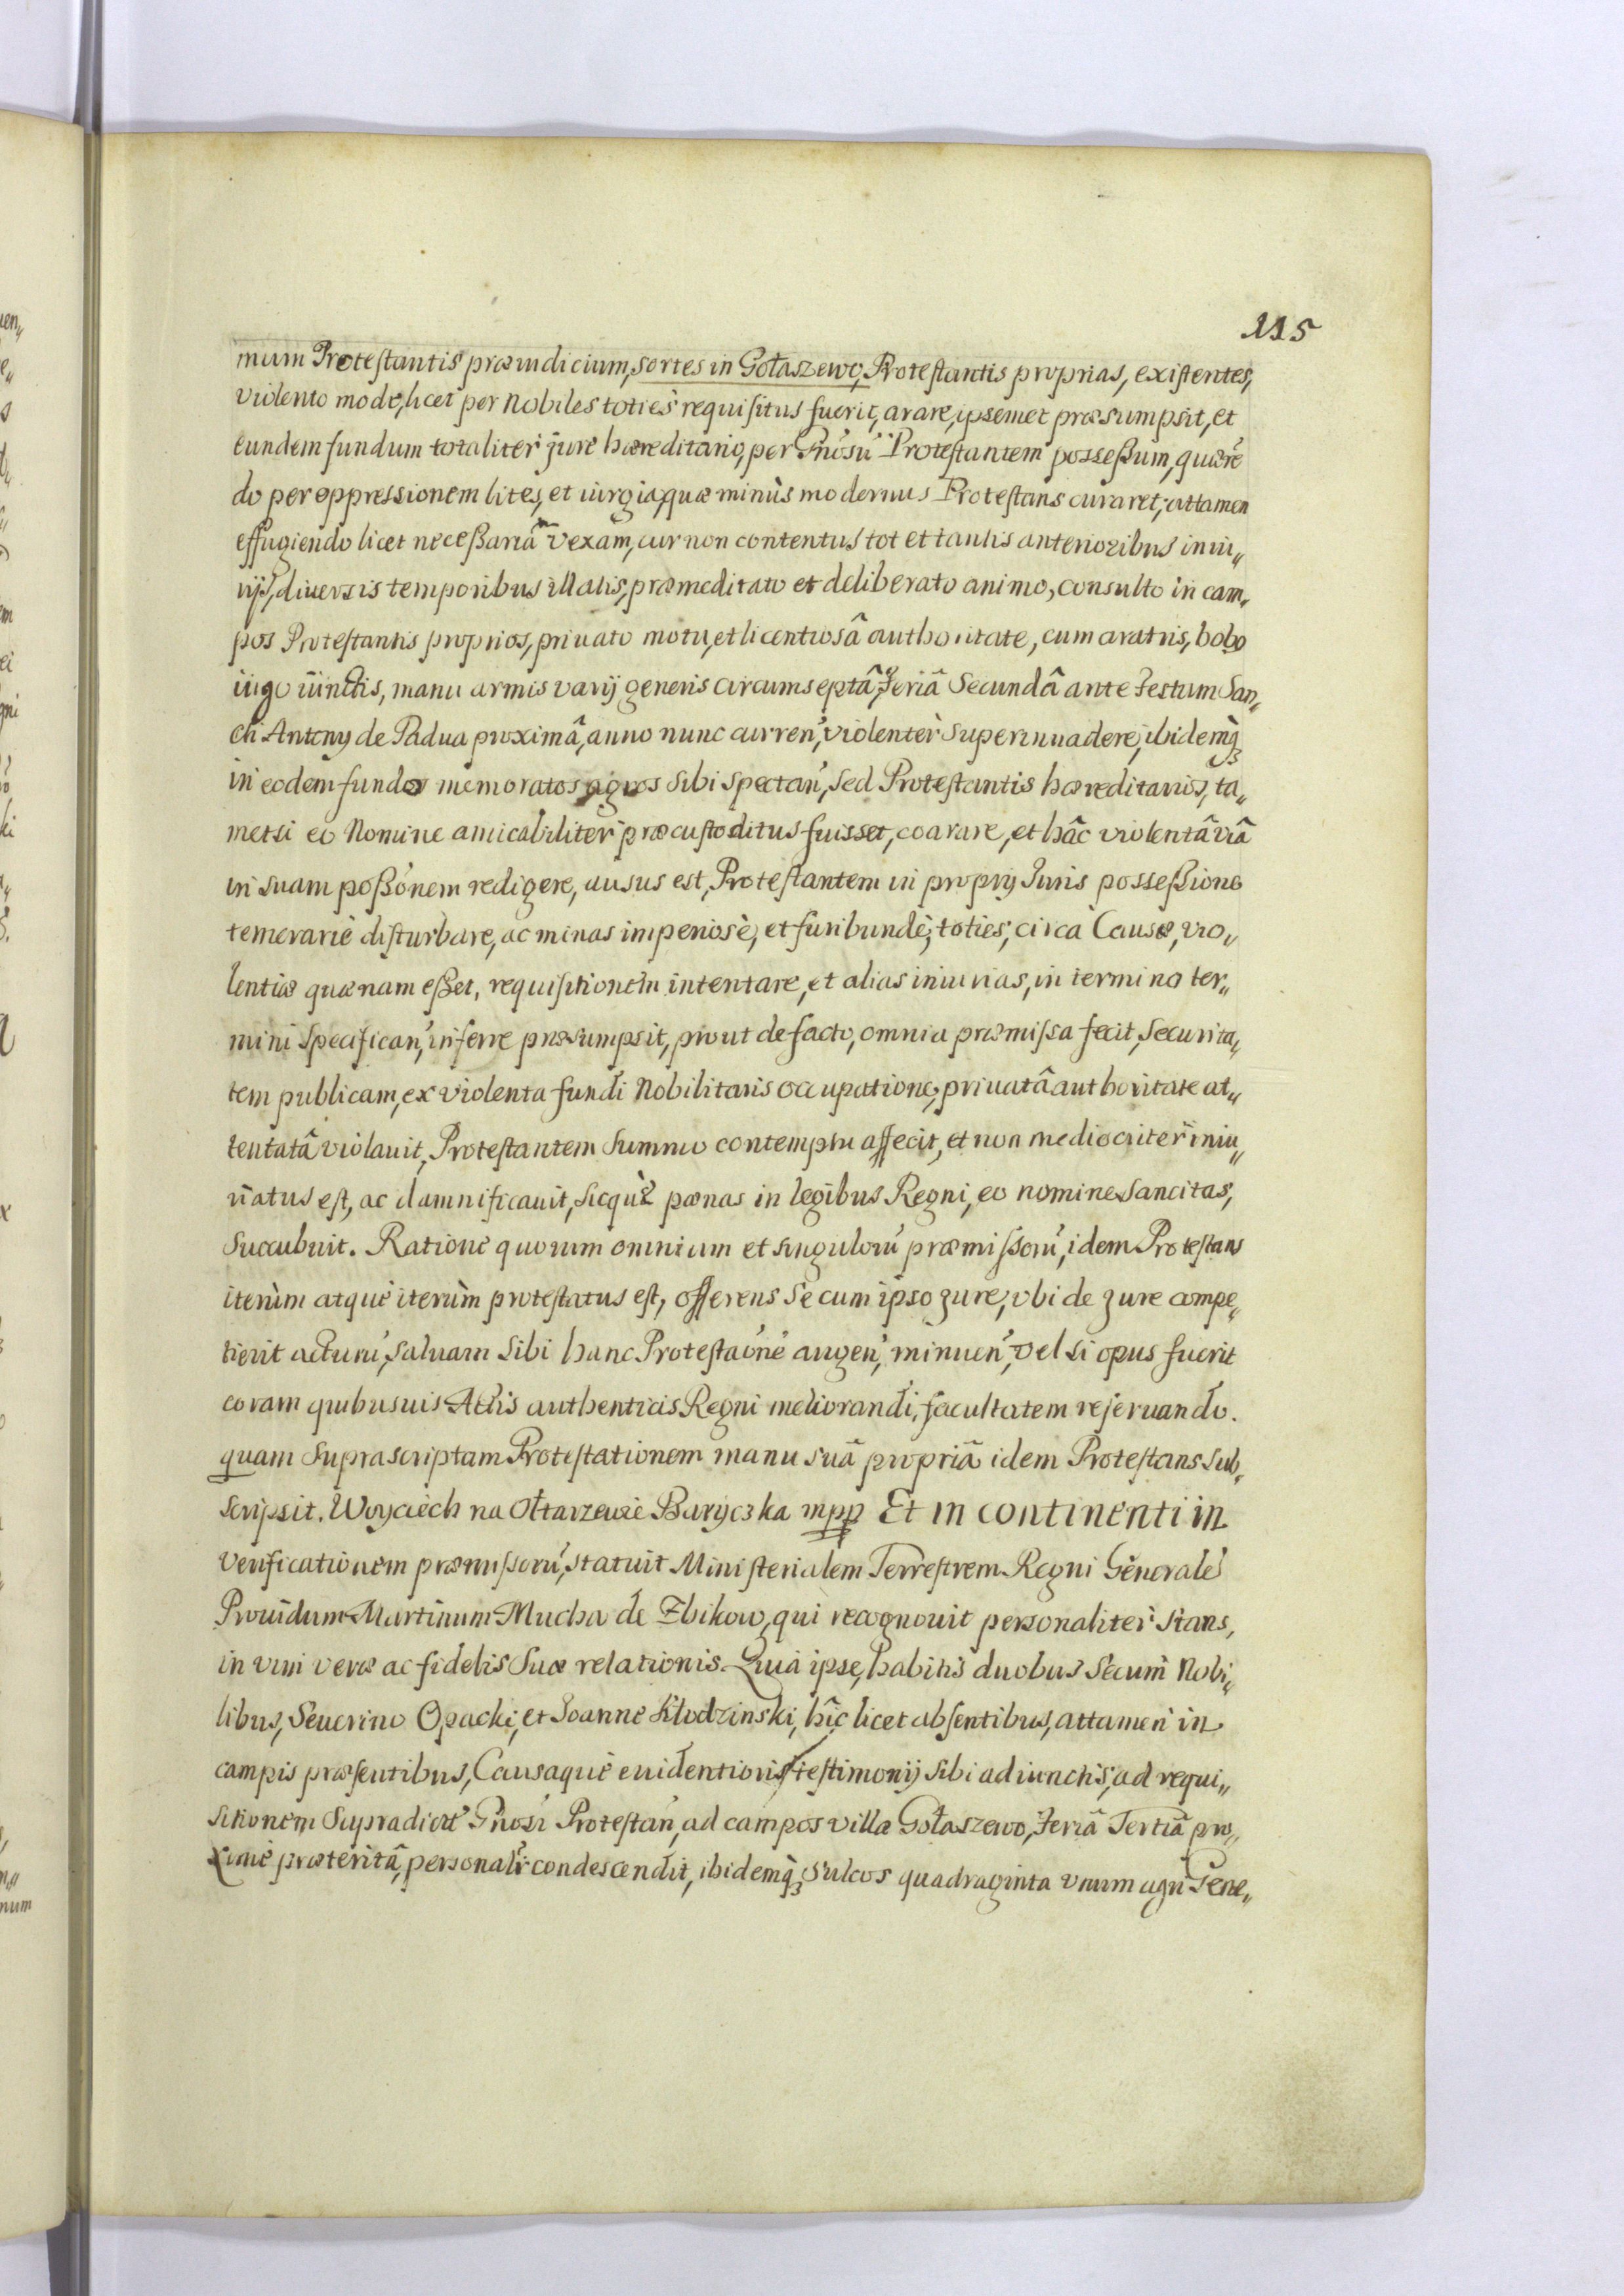 115
mum Protestantis præiudicium, sortes in Gołaszewo, Protestantis proprias, existentes,
violento modo, licet per Nobiles toties requisitus fuerit, arare, ipsemet præsumpsit, et
eundem fundum totaliter jure hæreditario, per Gnosú Protestantem possessum, quære„
do per oppressionem lites, et iurgia, quæ minùs modernus Protestans curaret, attamen
effugiendo licet necessariã vexam, cur non contentus tot et tantis anterioribus iniu„
rijs, diuersis temporibus illatis, præmeditato et deliberato animo, consulto in cam„
pos Protestantis proprios, priuato motu, et licentiosâ authoritate, cum aratris, bobo
iugo iunctis, manu armis varij generis circumseptâ, Feriâ Secundâ ante Festum San„
cti Antony de Padua proximâ, anno nunc curren, violentèr superinuadere, ibidemq̀
in eodem fundo memoratos agros sibi spectań, sed Protestantis hæreditarios, ta„
metsi eo Nomine amicabiliter præcustoditus fuisset, coarare, et hâc violentâ viâ
in suam possónem redigere, ausus est, Protestantem in proprij Iuris possessione
temerariè disturbare, ac minas imperiosè, et furibundè, toties, circa Causæ, vio„
lentiæ quænam esset, requisitionem intentare, et alias iniurias, in termino ter„
mini specifican, inferre præsumpsit, prout de facto, omnia præmissa fecit, securita„
tem publicam, ex violenta fundi Nobilitaris occupatione, priuatâ authoritate at„
tentatâ violauit, Protestantem summo contemptu affecit, et non mediocriter iniu„
riatus est, ac damnificauit, sicquè pœnas in legibus Regni, eo nomine sancitas,
succubuit. Ratione quorum omnium et singulorú præmissorú, idem Protestans
iterùm atquè iterùm protestatus est, offerens se cum ipso jure, vbi de jure compe„
tierit acturú, saluam sibi hanc Protestaóné augen, minuen, vel si opus fuerit
coram quibusuis Actis authenticis Regni meliorandi, facultatem reseruando.
quam suprascriptam Protestationem manu suâ propriâ idem Protestans sub„
scripsit. Woyciech na Ołtarzewie Baryczka mpp Et in continenti in
verificationem præmissorú, statuit Ministerialem Terrestrem Regni Generalé
Prouidum Martinum Mucha de Zbikow, qui recognouit personaliter stans,
in vim veræ ac fidelis suæ relationis. Quia ipse, habitis duobus secum Nobi„
libus, Seuerino Opacki, et Joanne Kłodzinski, hîc licet absentibus, attamen in
campis præsentibus, Causaquè euidentioris testimonij sibi adiunctis, ad requi„
sitionem supradicti Gnosi Protestań, ad campos villæ Gołaszewo, Feriâ Tertiâ pro„
ximè præteritâ, personalr condescendit, ibidemq̀ sulcos quadraginta vnum agri Gene„